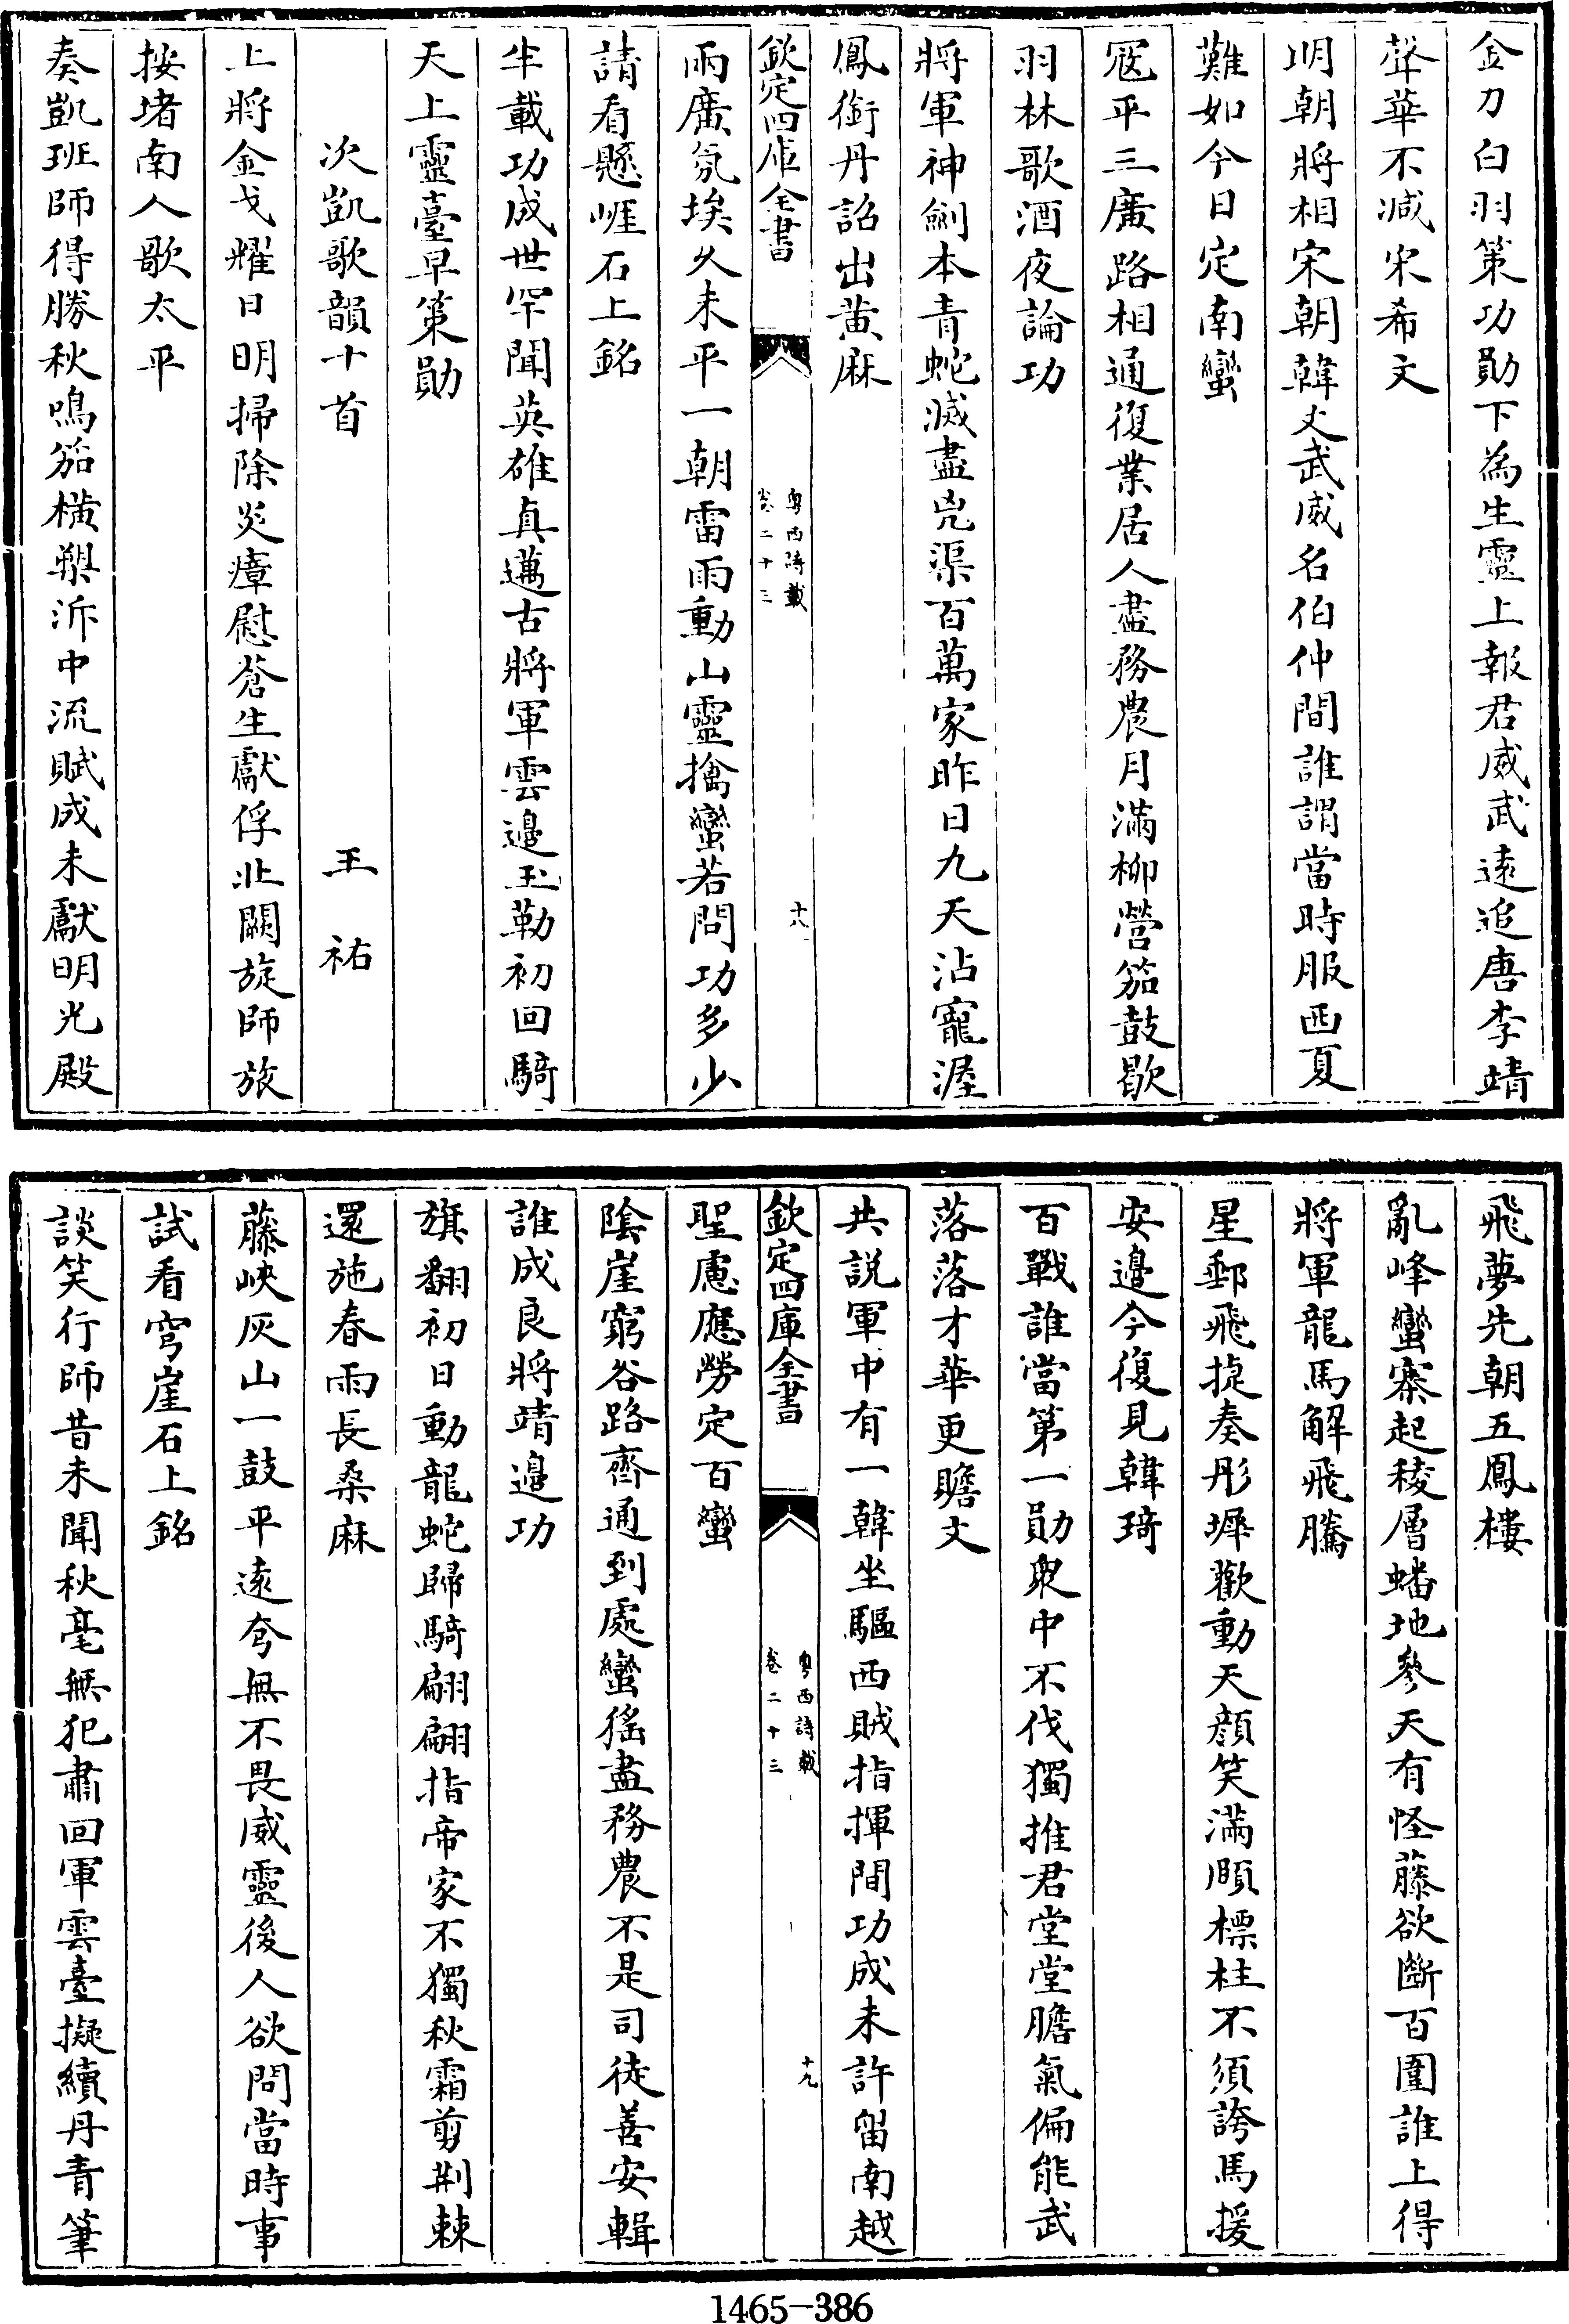 金刀白羽策功勛下為生靈上報君威武遠追唐李靖
聲華不減宋希文
明朝將相宋朝韓文武威名伯仲間誰謂當時服西夏
難如今日定南蠻
冦平三廣路相通復業居人盡務農月滿柳營笳鼓歇
羽林歌酒夜論功
將軍神劍本青蛇滅盡兇渠百萬家昨日九天沾寵渥
鳳銜丹詔出黃麻
欽定四庫全書
粵西詩載
卷二十三
十八
兩廣氛埃久未平一朝雷雨動山靈擒蠻若問功多少
請看懸崕石上銘
半載功成世罕聞英雄真邁古將軍雲邊玉勒初回騎
天上靈臺早策勛
次凱歌韻十首
王祐
上將金戈耀日明掃除炎瘴慰蒼生獻俘北闕旋師旅
按堵南人歌太平
奏凱班師得勝秋鳴笳橫槊泝中流賦成未獻明光殿
飛夢先朝五鳳樓
亂峰蠻寨起稜層蟠地參天有怪藤欲斷百圍誰上得
將軍龍馬解飛騰
星郵飛捷奏彤墀歡動天顔笑滿頤標柱不須誇馬援
安邊今復見韓琦
百戰誰當第一勛衆中不伐獨推君堂堂膽氣偏能武
落落才華更贍文
共説軍中有一韓坐驅西賊指揮間功成未許留南越
欽定四庫全書
粵西詩載
卷二十三
十九
聖慮應勞定百蠻
陰崖窮谷路齊通到處蠻猺盡務農不是司徒善安輯
誰成良將靖邊功
旗翻初日動龍蛇歸騎翩翩指帝家不獨秋霜剪荆棘
還施春雨長桑麻
藤峽灰山一鼓平遠夸無不畏威靈後人欲問當時事
試看穹崖石上銘
談笑行師昔未聞秋毫無犯肅回軍雲臺擬續丹青筆
1465-386